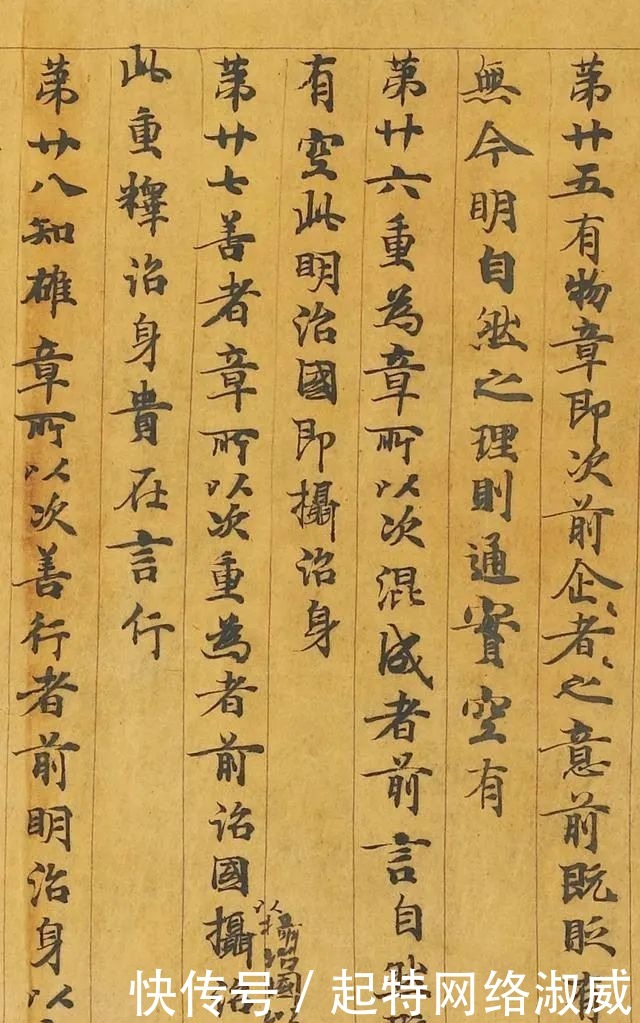 第廿五有物章即次前企者之意前既貶有
無今明自然之理則通實空有
第廿六重為章所以次混成者前言自然
有空此明治國即攝治身
第廿七善者章所以次重為者前治國攝治
以攝治國
此重釋治身貴在言行
第廿八知雄章所以次善行者前明治身以
快传号 / 起特网络淑威